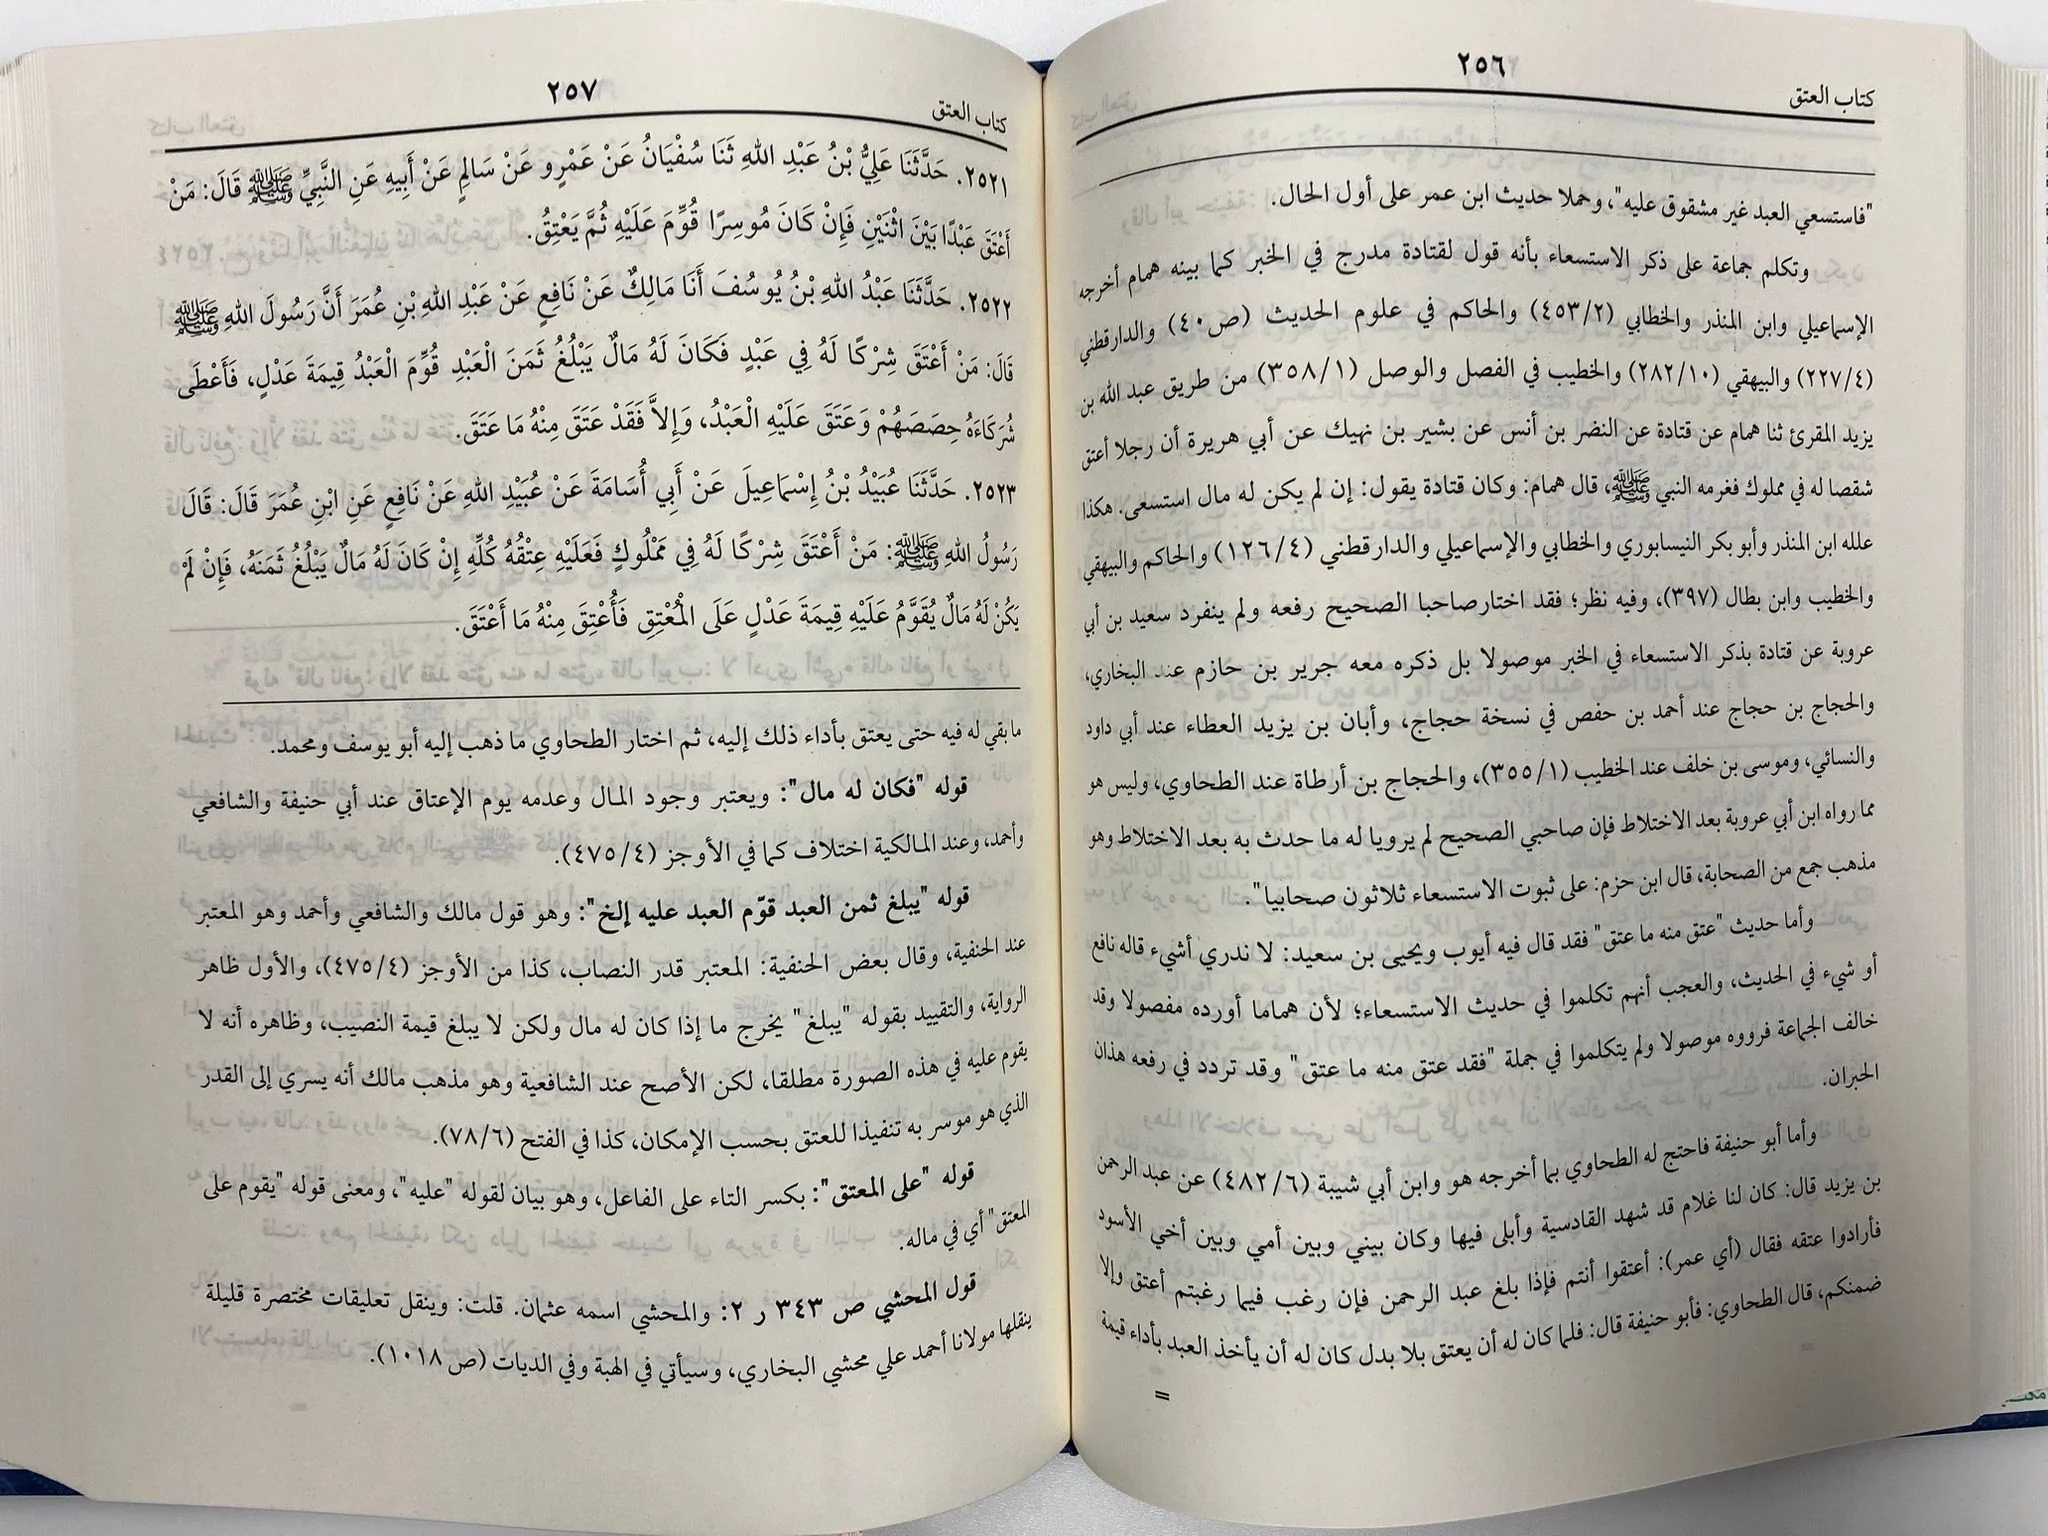 ٢٥٦
كتاب العتق
"فاستسعي العبد غير مشقوق عليه"، وحملا حديث ابن عمر على أول الحال.
وتكلم جماعة على ذكر الاستسعاء بأنه قول لقتادة مدرج في الخبر كما بينه همام أخرجه
الإسماعيلي وابن المنذر والخطابي (٤٥٣/٢) والحاكم في علوم الحديث (ص٤٠) والدارقطني
(٢٢٧/٤) والبيهقي (٢٨٢/١٠) والخطيب في الفصل والوصل (٣٥٨/١) من طريق عبد الله بن
يزيد المقرئ ثنا همام عن قتادة عن النضر بن أنس عن بشير بن نهيك عن أبي هريرة أن رجلا أعتق
شقصا له في مملوك فغرمه النبي ﷺ، قال همام: وكان قتادة يقول: إن لم يكن له مال استسعى. هكذا
علله ابن المنذر وأبو بكر النيسابوري والخطابي والإسماعيلي والدارقطني (١٢٦/٤) والحاكم والبيهقي
والخطيب وابن بطال (٣٩٧)، وفيه نظر؛ فقد اختار صاحبا الصحيح رفعه ولم ينفرد سعيد بن أبي
عروبة عن قتادة بذكر الاستسعاء في الخبر موصولا بل ذكره معه جرير بن حازم عند البخاري،
والحجاج بن حجاج عند أحمد بن حفص في نسخة حجاج، وأبان بن يزيد العطاء عند أبي داود
والنسائي، وموسى بن خلف عند الخطيب (٣٥٥/١)، والحجاج بن أرطاة عند الطحاوي، وليس هو
مما رواه ابن أبي عروبة بعد الاختلاط فإن صاحبي الصحيح لم يرويا له ما حدث به بعد الاختلاط وهو
مذهب جمع من الصحابة، قال ابن حزم: على ثبوت الاستسعاء ثلاثون صحابيا".
وأما حديث "عتق منه ما عتق" فقد قال فيه أيوب ويحيى بن سعيد: لا ندري أشيء قاله نافع
أو شيء في الحديث، والعجب أنهم تكلموا في حديث الاستسعاء؛ لأن هماما أورده مفصولا وقد
خالف الجماعة فرووه موصولا ولم يتكلموا في جملة "فقد عتق منه ما عتق" وقد تردد في رفعه هذان
الحبران.
وأما أبو حنيفة فاحتج له الطحاوي بما أخرجه هو وابن أبي شيبة (٤٨٢/٦) عن عبد الرحمن
بن يزيد قال: كان لنا غلام قد شهد القادسية وأبلى فيها وكان بيني وبين أمي وبين أخي الأسود
فأرادوا عتقه فقال (أي عمر): أعتقوا أنتم فإذا بلغ عبد الرحمن فإن رغب فيما رغبتم أعتق وإلا
ضمنكم، قال الطحاوي: فأبو حنيفة قال: فلما كان له أن يعتق بلا بدل كان له أن يأخذ العبد بأداء قيمة
=
٢٥٧
كتاب العتق
٢٥٢١. حَدَّثَنَا عَلِيُّ بْنُ عَبْدِ اللهِ ثَنَا سُفْيَانُ عَنْ عَمْرٍو عَنْ سَالِمٍ عَنْ أَبِيهِ عَنِ النَّبِيِّ ﷺ قَالَ: مَنْ
أَعْتَقَ عَبْدًا بَيْنَ اثْنَيْنِ فَإِنْ كَانَ مُوسِرًا قُوِّمَ عَلَيْهِ ثُمَّ يَعْتِقُ.
٢٥٢٢. حَدَّثَنَا عَبْدُ اللهِ بْنُ يُوسُفَ أَنَا مَالِكٌ عَنْ نَافِعٍ عَنْ عَبْدِ اللهِ بْنِ عُمَرَ أَنَّ رَسُولَ اللهِ ﷺ
قَالَ: مَنْ أَعْتَقَ شِرْكًا لَهُ فِي عَبْدٍ فَكَانَ لَهُ مَالٌ يَبْلُغُ ثَمَنَ الْعَبْدِ قُوِّمَ الْعَبْدُ قِيمَةَ عَدْلٍ، فَأَعْطَى
شُرَكَاءَهُ حِصَصَهُمْ وَعَتَقَ عَلَيْهِ الْعَبْدُ، وَإِلاَّ فَقَدْ عَتَقَ مِنْهُ مَا عَتَقَ.
٢٥٢٣. حَدَّثَنَا عُبَيْدُ بْنُ إِسْمَاعِيلَ عَنْ أَبِي أُسَامَةَ عَنْ عُبَيْدِ اللهِ عَنْ نَافِعٍ عَنِ ابْنِ عُمَرَ قَالَ: قَالَ
رَسُولُ اللهِ ﷺ: مَنْ أَعْتَقَ شِرْكًا لَهُ فِي مَمْلُوكٍ فَعَلَيْهِ عِتْقُهُ كُلِّهِ إِنْ كَانَ لَهُ مَالٌ يَبْلُغُ ثَمَنَهُ، فَإِنْ لَمْ
يَكُنْ لَهُ مَالٌ يُقَوَّمُ عَلَيْهِ قِيمَةَ عَدْلٍ عَلَى الْمُعْتِقِ فَأُعْتِقَ مِنْهُ مَا أَعْتَقَ.
ما بقي له فيه حتى يعتق بأداء ذلك إليه، ثم اختار الطحاوي ما ذهب إليه أبو يوسف ومحمد.
قوله "فكان له مال": ويعتبر وجود المال وعدمه يوم الإعتاق عند أبي حنيفة والشافعي
وأحمد، وعند المالكية اختلاف كما في الأوجز (٤٧٥/٤).
قوله "يبلغ ثمن العبد قوّم العبد عليه إلخ": وهو قول مالك والشافعي وأحمد وهو المعتبر
عند الحنفية، وقال بعض الحنفية: المعتبر قدر النصاب، كذا من الأوجز (٤٧٥/٤)، والأول ظاهر
الرواية، والتقييد بقوله "يبلغ" يخرج ما إذا كان له مال ولكن لا يبلغ قيمة النصيب، وظاهره أنه لا
يقوم عليه في هذه الصورة مطلقا، لكن الأصح عند الشافعية وهو مذهب مالك أنه يسري إلى القدر
الذي هو موسر به تنفيذا للعتق بحسب الإمكان، كذا في الفتح (٧٨/٦).
قوله "على المعتق": بكسر التاء على الفاعل، وهو بيان لقوله "عليه"، ومعنى قوله "يقوم على
المعتق" أي في ماله.
قول المحشي ص ٣٤٣ ر ٢: والمحشي اسمه عثمان. قلت: وينقل تعليقات مختصرة قليلة
ينقلها مولانا أحمد علي محشي البخاري، وسيأتي في الهبة وفي الديات (ص ١٠١٨).